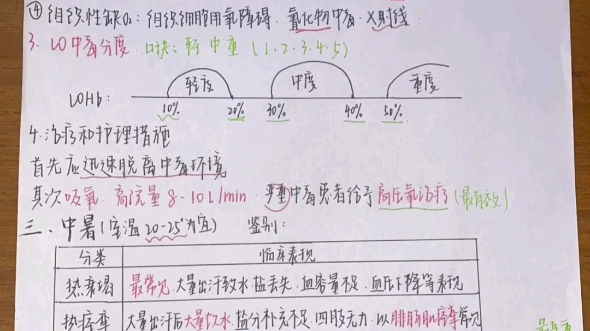 ④组织性缺O₂：组织细胞用氧障碍．氰化物中毒．X射线
3. CO中毒分度．口诀：轻中重（1.2.3.4.5）
轻度 中度 重度
COHb： 10% 20% 30% 40% 50%
4.治疗和护理措施
首先应迅速脱离中毒环境
其次吸氧．高流量8-10L/min．严重中毒患者给予高压氧治疗（最有效）
三．中暑（室温20-25°为宜） 鉴别：
分类 临床表现
热衰竭 最常见．大量出汗致水．盐丢失．血容量不足．血压下降等表现
热痉挛 大量出汗后大量饮水．盐分补充不足．四肢无力．以腓肠肌痉挛常见